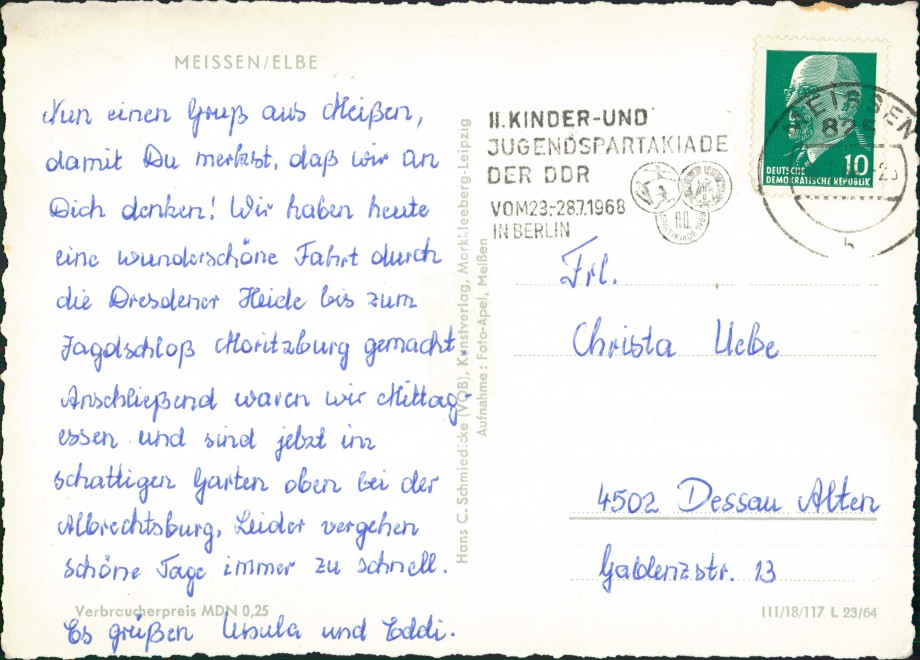 MEISSEN/ELBE
Nun einen Gruß aus Meißen,
damit Du merkst, daß wir an
Dich denken! Wir haben heute
eine wunderschöne Fahrt durch
die Dresdener Heide bis zum
Jagdschloß Moritzburg gemacht.
Anschließend waren wir Mittag-
essen und sind jetzt im
schattigen Garten oben bei der
Albrechtsburg. Leider vergehen
schöne Tage immer zu schnell.
Es grüßen Ursula und Eddi.
Verbraucherpreis MDN 0,25
Hans C. Schmiedicke (VOB), Kunstverlag, Markkleeberg-Leipzig
Aufnahme: Foto-Apel, Meißen
II. KINDER-UND
JUGENDSPARTAKIADE
DER DDR
VOM 23.-28.7.1968
IN BERLIN
MEISSEN
825
10
DEUTSCHE
DEMOKRATISCHE REPUBLIK
h
Frl.
Christa Uebe
4502 Dessau Alten
Galdenzstr. 13
III/18/117 L 23/64